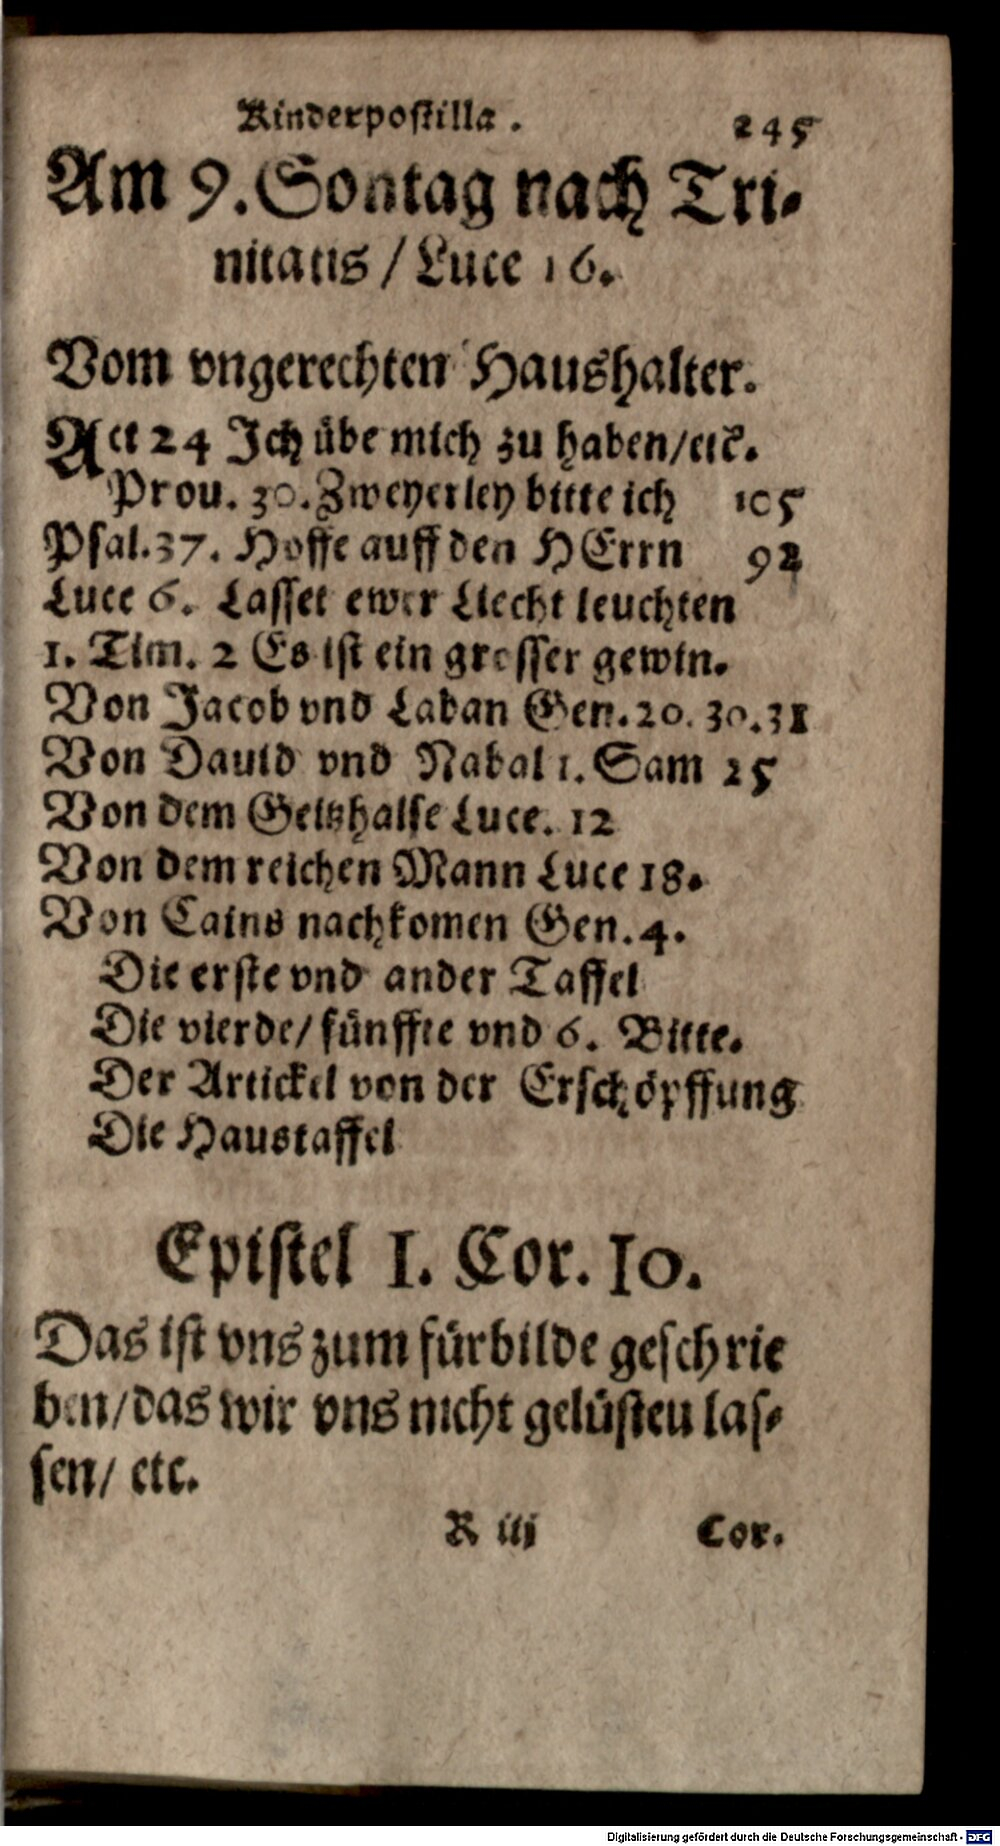 Kinderpostilla. 245
Am 9. Sontag nach Tri-
nitatis / Luce 16.
Vom vngerechten Haushalter.
Act 24 Ich übe mich zu haben/etc.
Prou. 30. Zweyerley bitte ich 105
Psal. 37. Hoffe auff den HErrn 92
Luce 6. Lasset ewer Liecht leuchten
1. Tim. 2 Es ist ein grosser gewin.
Von Jacob vnd Laban Gen. 20. 30. 31
Von Dauid vnd Nabal 1. Sam 25
Von dem Geitzhalse Luce. 12
Von dem reichen Mann Luce 18.
Von Cains nachkomen Gen. 4.
Die erste vnd ander Taffel
Die vierde/ fünffte vnd 6. Bitte.
Der Artickel von der Erschöpffung
Die Haustaffel
Epistel 1. Cor. 10.
Das ist vns zum fürbilde geschrie
ben/das wir vns nicht gelüsteu las-
sen/ etc.
R iij Cor.
Digitalisierung gefördert durch die Deutsche Forschungsgemeinschaft - DFG